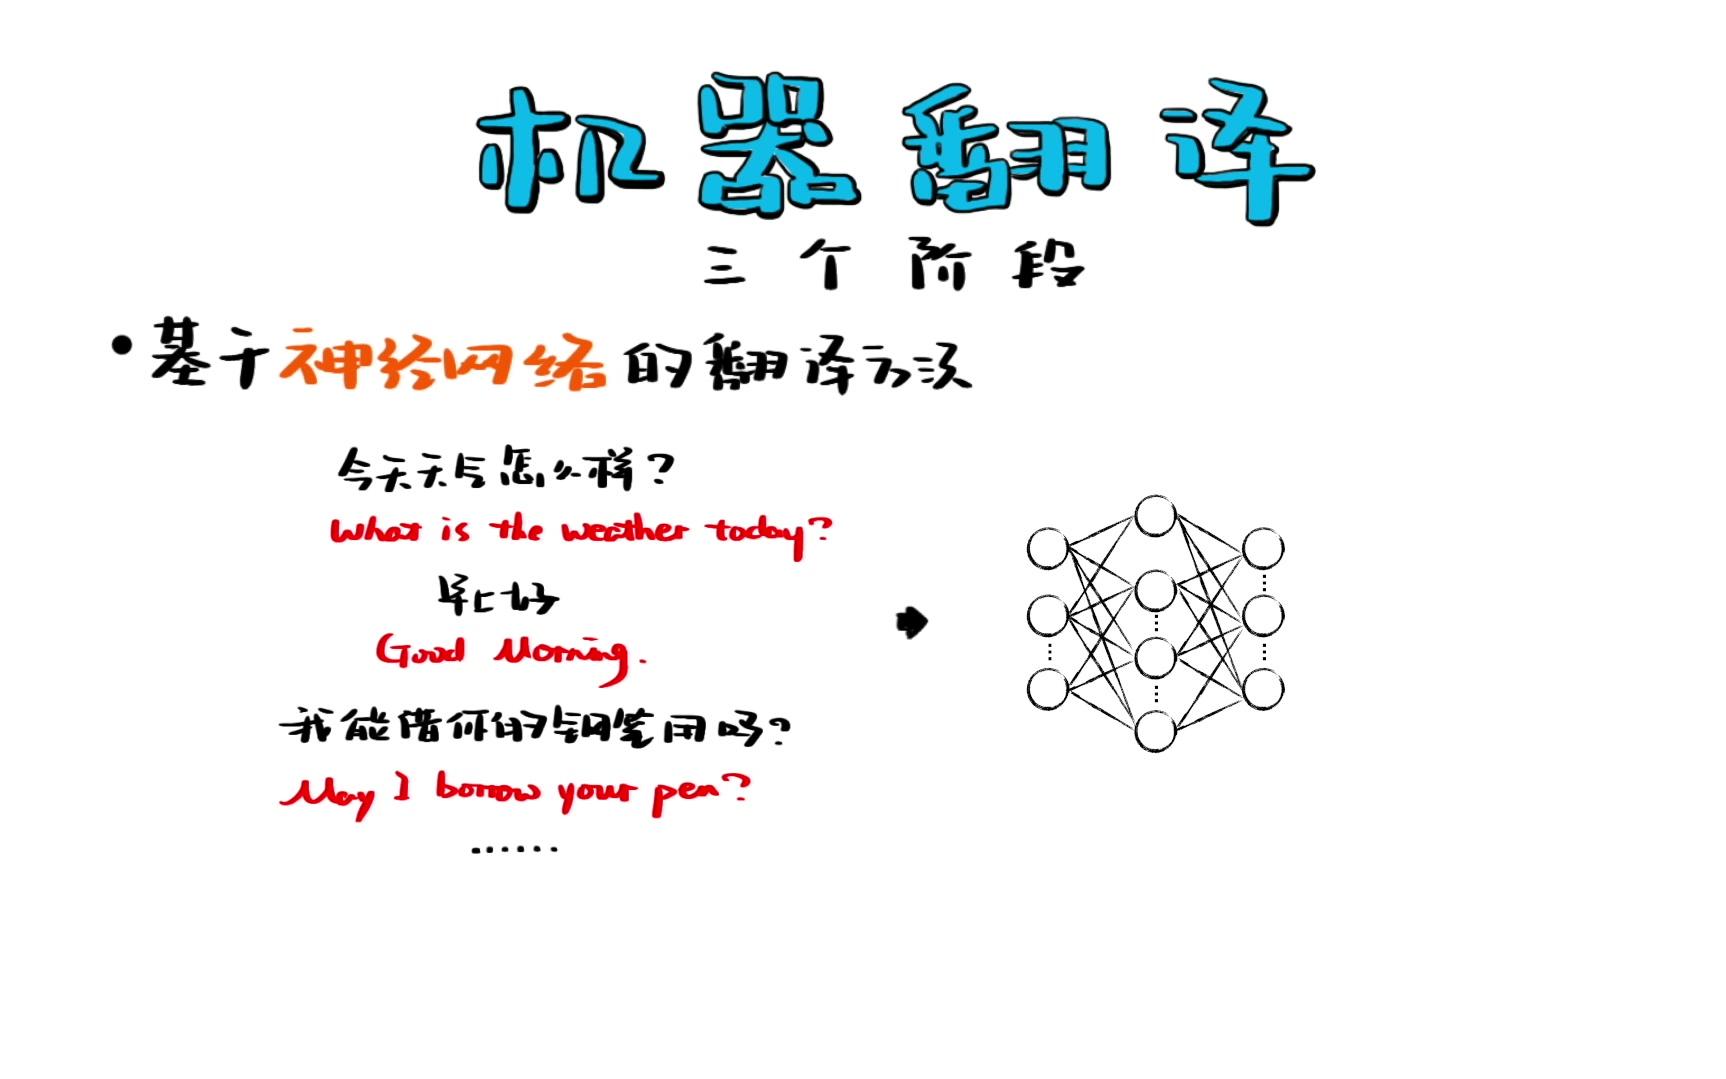 机器翻译
三个阶段
•基于神经网络的翻译方法
今天天气怎么样?
What is the weather today?
早上好
Good Morning.
我能借你的钢笔用吗?
May I borrow your pen?
......